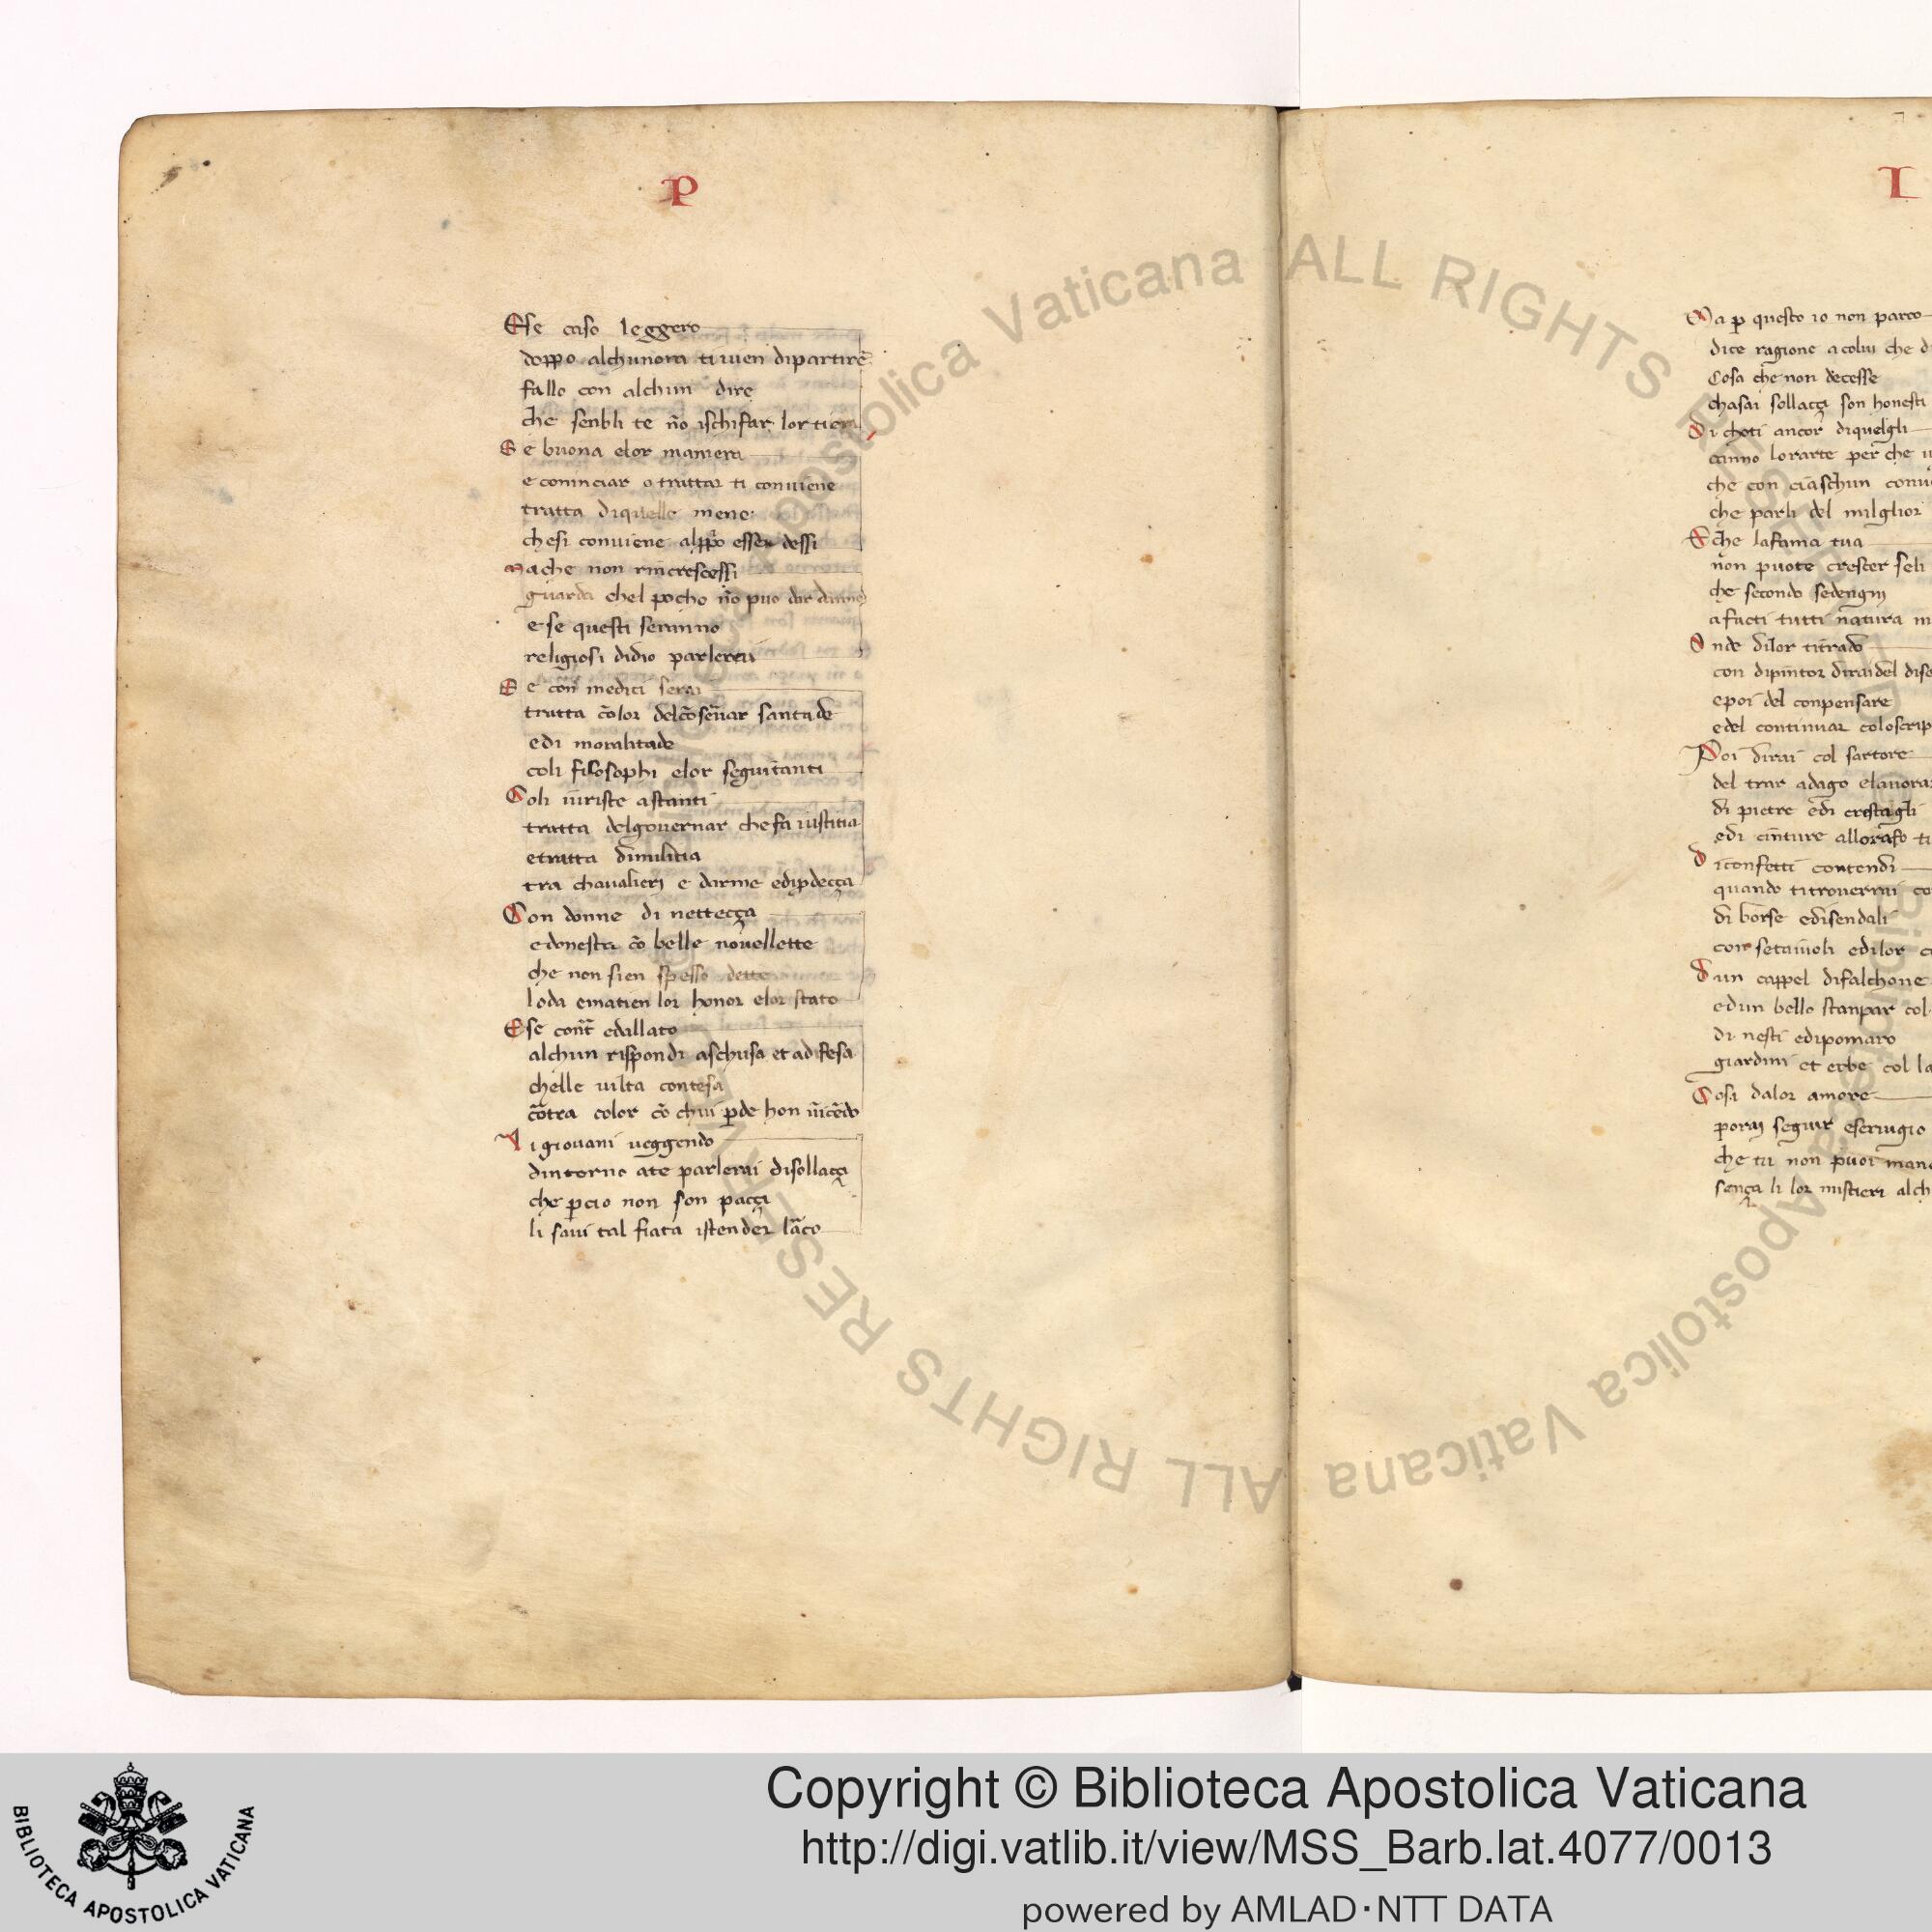 P
E se caso leggero
doppo alchunora ti uien dipartire
fallo con alchun dire
che senbli te nõ ischifar lor tiera
S e buona elor maniera
e cominciar o trattar ti conuiene
tratta diquelle mene
chesi conuiene alpp̃o esser dessi
M a che non rincrescessi
guarda chel pocho nõ puo dar danno
e se questi seranno
religiosi didio parlerai
S e con medici serai
tratta cõlor delcõseruar santade
edi moralitade
coli filosophi elor seguitanti
C oli iuriste astanti
tratta delgouernar che fa iustitia
etratta dimilitia
tra chaualieri e darme edipdeçça
C on donne di nettecça
edonesta cõ belle nouellette
che non sien spesso dette
loda ematien lor honor elor stato
E se contr̃ edallato
alchun rispondi aschusa et ad ifesa
chelle uilta contesa
cõtra color cõ chui pde hon uĩcẽdo
A i giouani ueggendo
dintorno ate parlerai disollaçi
che pcio non son paççi
li saui tal fiata istender lãco
I
M a p questo io non parco
dice ragione acolui che
Cosa che non decesse
chasai sollaççi son honesti
D i choti ancor diquelgli
canno lorarte per che
che con ciaschun
che parli del milglior
E che lafama tua
non puote crescer seli
che secondo sedengni
afacti tutti natura
O nde dilor titrado
con dipintor diraidel
epoi del conpensare
edel continuar
P oi dirai col sartore
del trar adago
di pietre edi crestagli
edi cinture allorafo
D iconfetti contendi
quando titrouerrai
di borse edisendali
con setaiuoli edilor
D un cappel difalchone
edun bello stanpar
di nesti edipomaro
giardini et erbe
C osi dalor amore
porai seguir eseruigio
che tu non puoi
sença li lor mistieri
Apostolica Vaticana ALL RIGHTS RESERVED
© Biblioteca Apostolica Vaticana ALL RIGHTS RESERVED
BIBLIOTECA APOSTOLICA VATICANA
Copyright © Biblioteca Apostolica Vaticana
http://digi.vatlib.it/view/MSS_Barb.lat.4077/0013
powered by AMLAD·NTT DATA